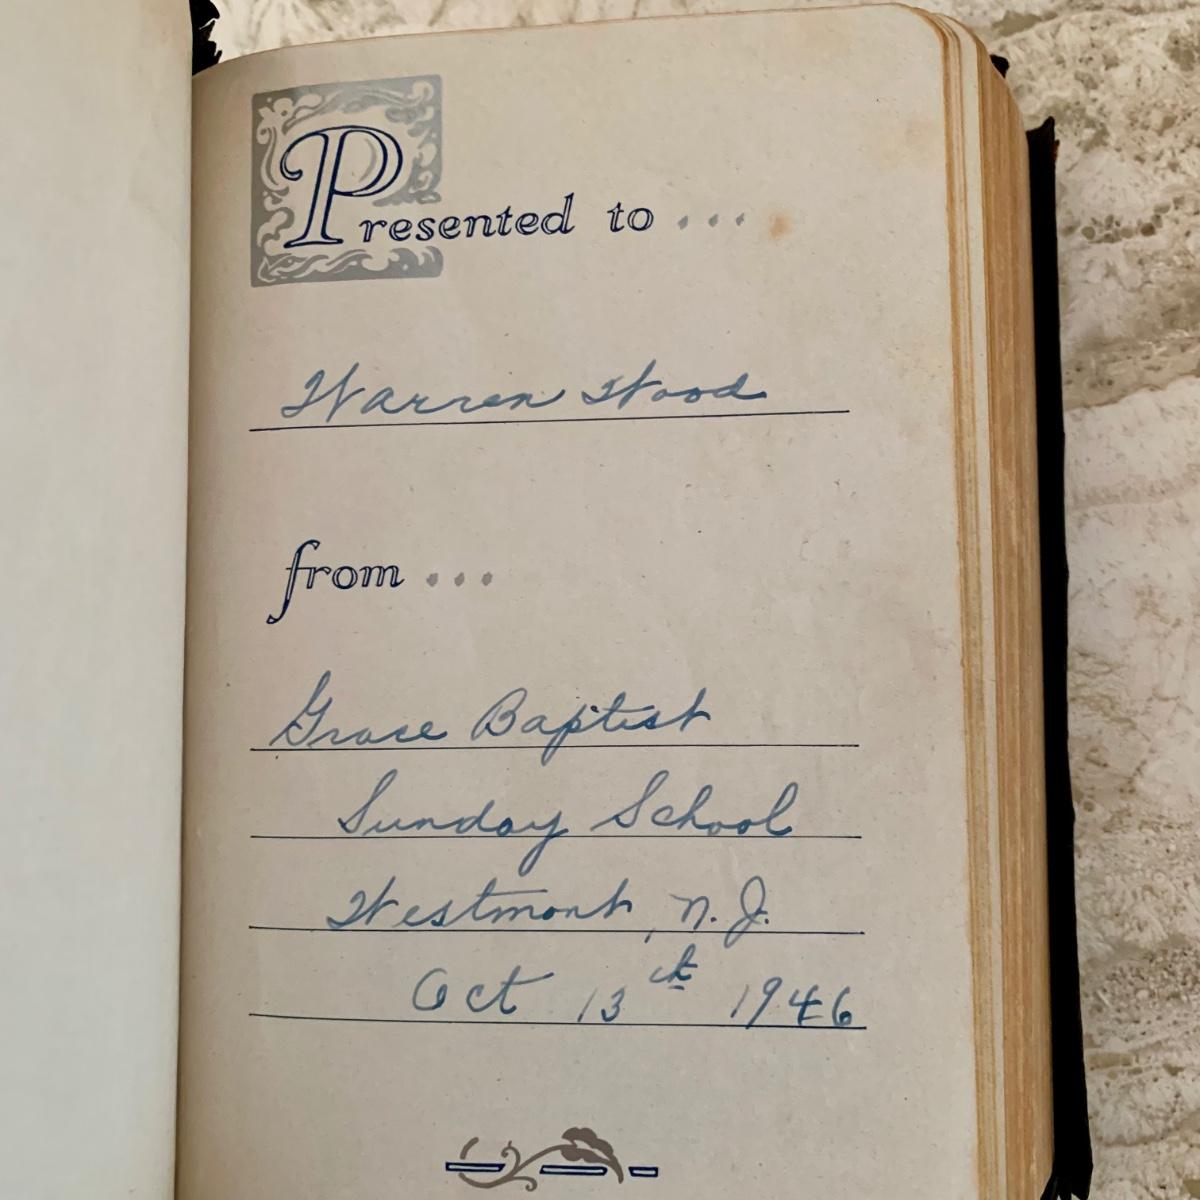 Presented to . . .
Warren Wood
from . . .
Grace Baptist
Sunday School
Westmont, N. J.
Oct 13th 1946